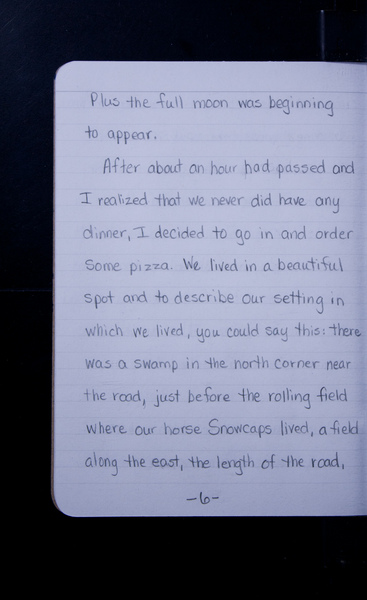 Plus the full moon was beginning
to appear.
After about an hour had passed and
I realized that we never did have any
dinner, I decided to go in and order
some pizza. We lived in a beautiful
spot and to describe our setting in
which we lived, you could say this: there
was a swamp in the north corner near
the road, just before the rolling field
where our horse Snowcaps lived, a field
along the east, the length of the road,
-6-